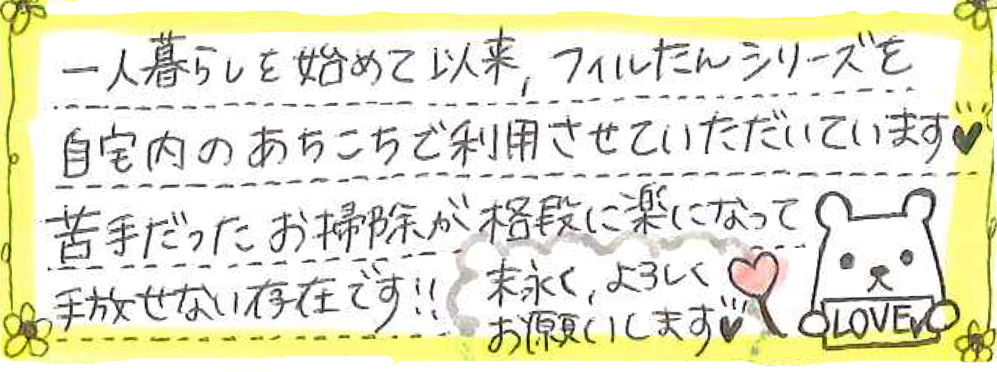 一人暮らしを始めて以来,フィルたんシリーズを
自宅内のあちこちで利用させていただいています♥
苦手だったお掃除が格段に楽になって
手放せない存在です!!
末永く,よろしく
お願いします♥
LOVE